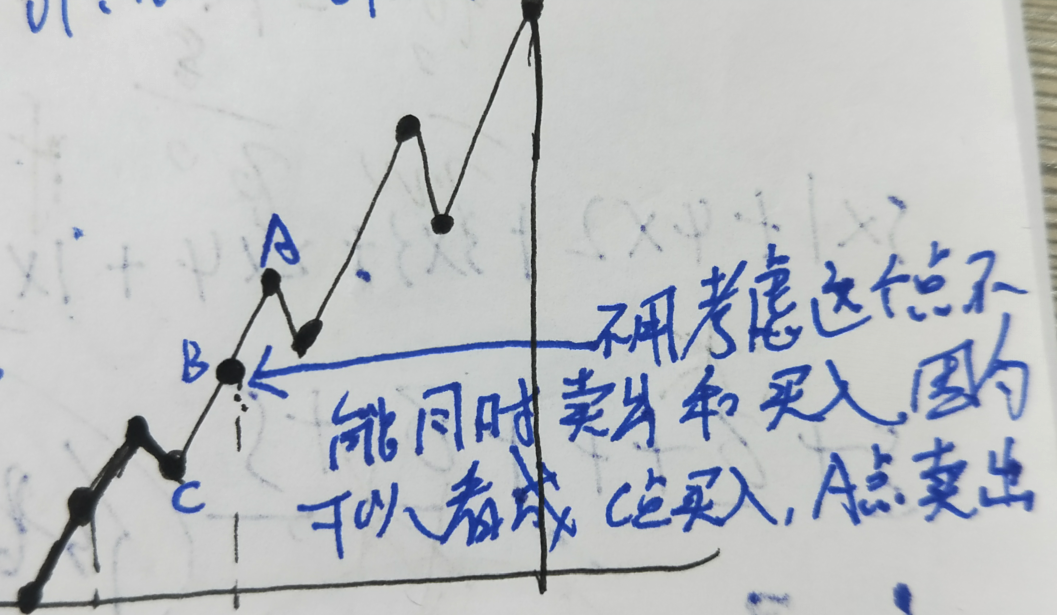 A
B
C
不用考虑这个点不
能同时卖出和买入,因为
可以看成 C点买入,A点卖出